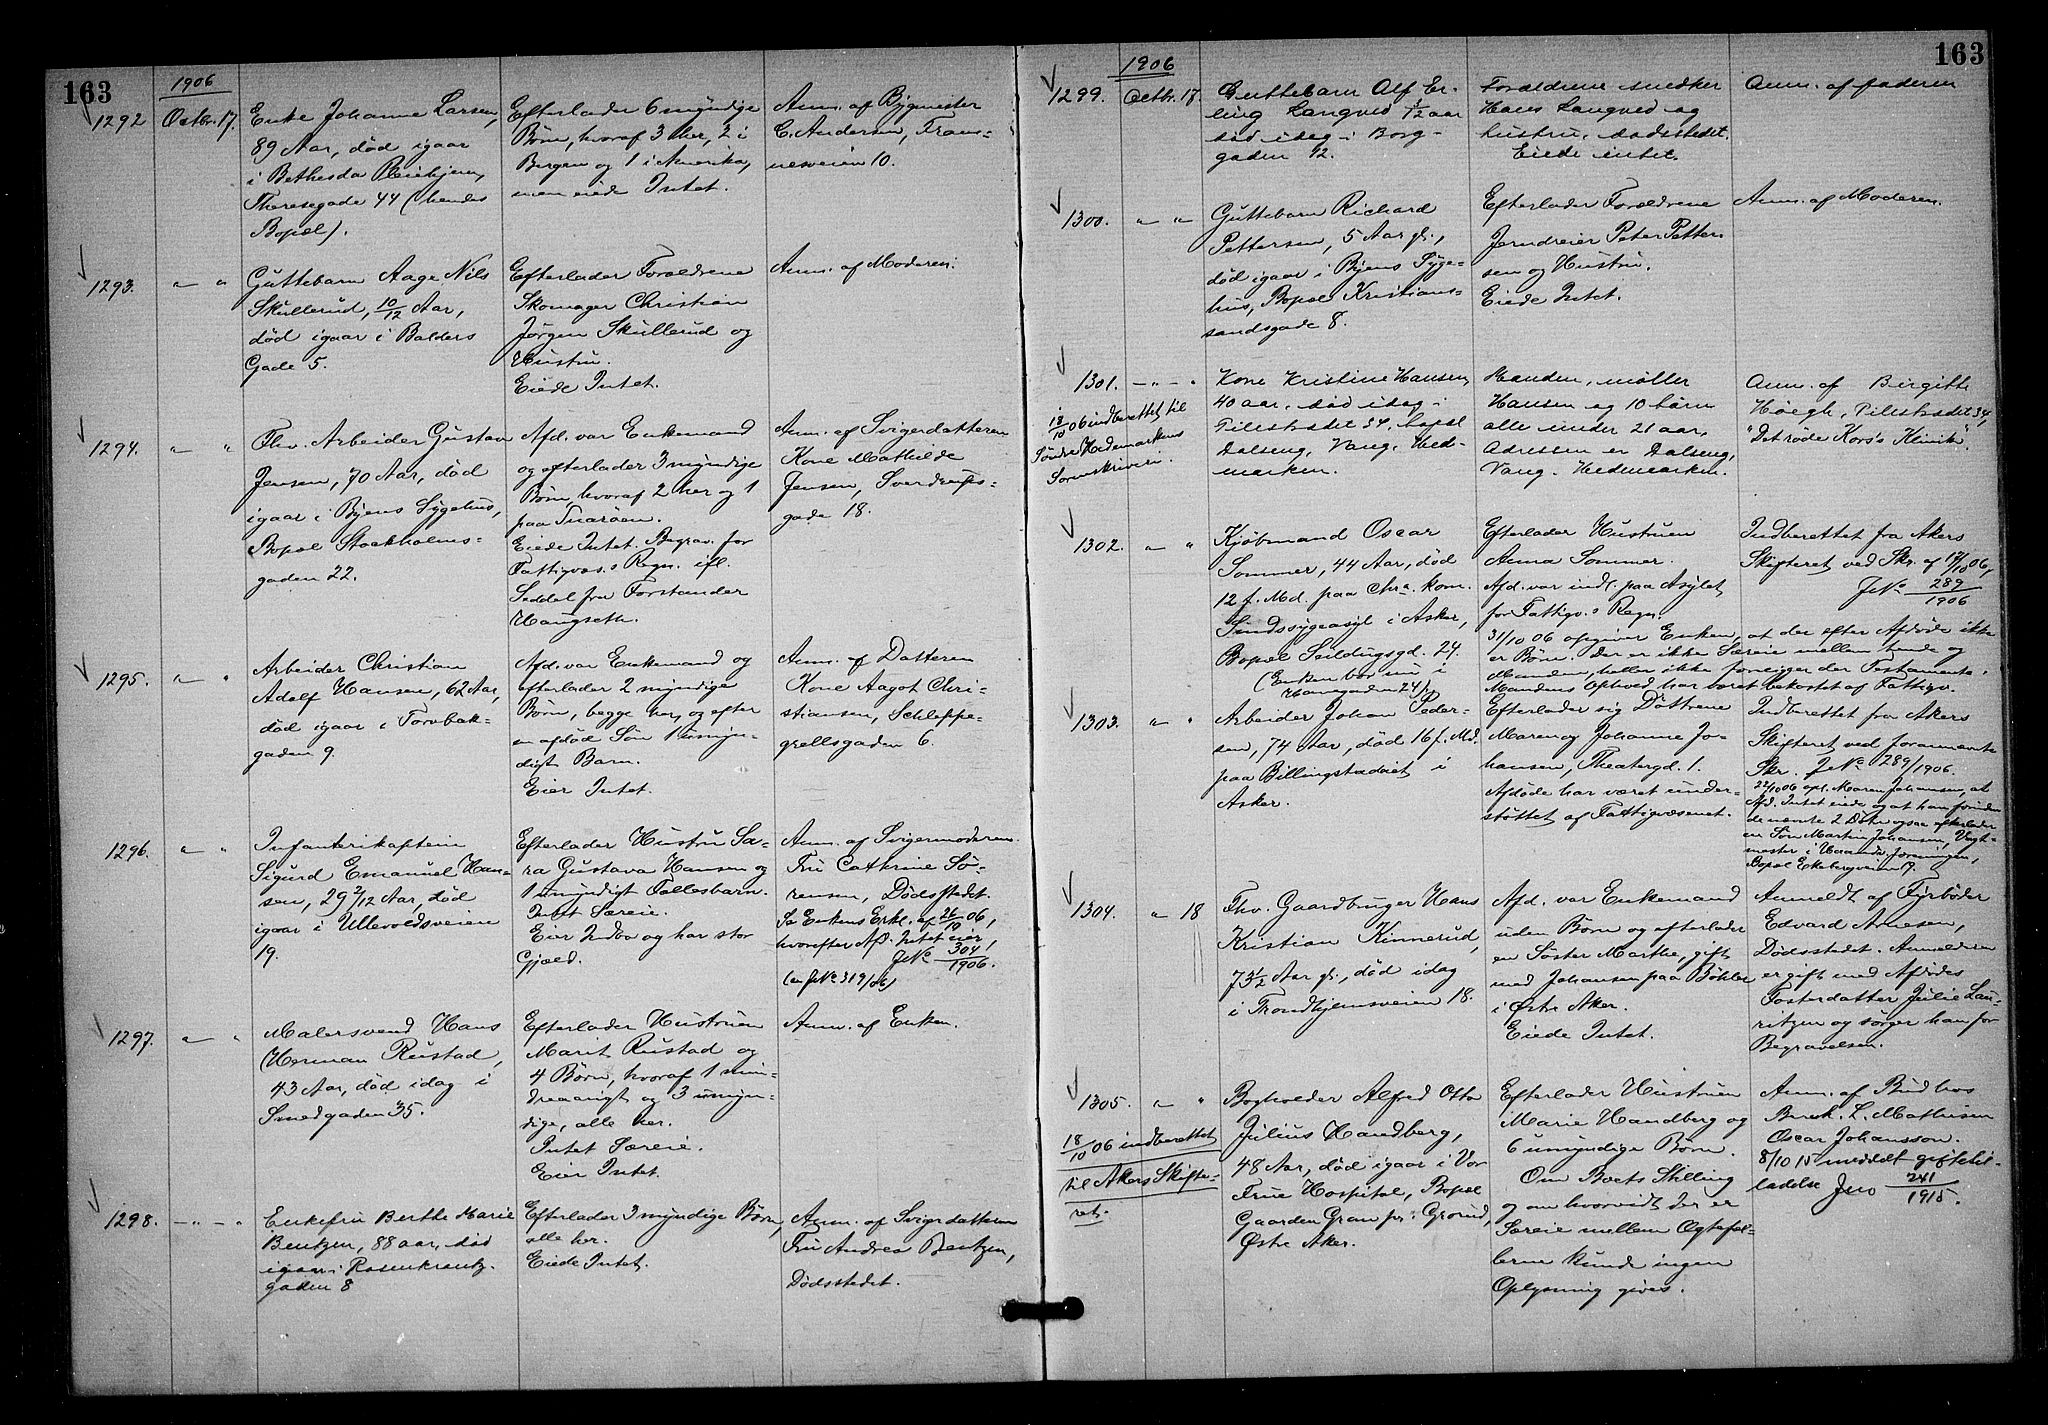 163
1906
1292
Octbr. 17.
Enke Johanne Larsen,
89 Aar, død igaar
i Bethesda Pleiehjem,
Theresegade 44 (hendes
Bopæl).
Efterlader 6 myndige
Børn, hvoraf 3 her, 2 i
Bergen og 1 i Amerika,
men eiede Intet.
Anm. af Bygmester
C. Andersen, Tran-
nesveien 10.
1293. " "
Guttebarn Aage Nils
Skullerud, 10/12 Aar,
død igaar i Balders
Gade 5.
Efterlader Forældrene
Skomager Christian
Jørgen Skullerud og
Hustru.
Eiede Intet.
Anm. af Moderen.
1294. " "
Fhv. Arbeider Gustav
Jensen, 70 Aar, død
igaar i Byens Sygehus,
Bopæl Stockholms-
gaden 22.
Afd. var Enkemand
og efterlader 3 myndige
Børn, hvoraf 2 her og 1
paa Snarøen.
Eiede Intet. Begrav. for
Fattigvæs.s Regn. ifl.
Seddel fra Forstander
Haugseth.
Anm. af Svigerdatteren
Kone Mathilde
Jensen, Sverdrups-
gade 18.
1295. " "
Arbeider Christian
Adolf Hansen, 62 Aar,
død igaar i Torvbak-
gaden 9.
Afd. var Enkemand og
efterlader 2 myndige
Børn, begge her, og efter
en afdød Søn 1 umyn-
digt Barn.
Eier Intet.
Anm. af Datteren
Kone Aagot Chri-
stiansen, Schleppe-
grellsgaden 6.
1296. " "
Infanterikaptein
Sigurd Emanuel Han-
sen, 29 2/12 Aar, død
igaar i Ullevoldsveien
19.
Efterlader Hustru Sa-
ra Gustava Hansen og
1 umyndigt Fællesbarn.
Intet Særeie.
Eier Indbo og har stor
Gjæld.
Anm. af Svigermoderen
Fru Cathrine Sø-
rensen, Dødsstedet.
Se Enkens Erkl. af 26/10 06,
hvorefter Afd. Intet eier
JNo 304/1906.
(cn JNo 319/06)
1297. " "
Malersvend Hans
Herman Rustad,
43 Aar, død idag i
Smedgaden 35.
Efterlader Hustruen
Marit Rustad og
4 Børn, hvoraf 1 min-
dreaarigt og 3 umyn-
dige, alle her.
Intet Særeie.
Eier Intet.
Anm. af Enken.
1298. " "
Enkefru Berthe Marie
Bentzen, 88 aar, død
igaar i Rosenkrantz-
gaden 8
Efterlader 3 myndige Børn,
alle her.
Eiede Intet.
Anm. af Svigerdatteren
Fru Andrea Bentzen,
Dødsstedet.
163
1906
1299.
Octbr. 17.
Guttebarn Alf Er-
ling Langved 1/12 aar
død idag i Borg-
gaden 12.
Forældrene snedker
Hans Langved og
hustru, dødsstedet.
Eiede intet.
Anm. af faderen
1300. " "
Guttebarn Richard
Pettersen, 5 Aar gl.,
død igaar i Byens Syge-
hus, Bopæl Kristian-
sandsgade 8.
Efterlader Forældrene
Jerndreier Peter Petter-
sen og Hustru.
Eiede Intet.
Anm. af Moderen.
1301. " "
18/10 06 indberettet til
Søndre Hedemarkens
Sorenskriveri.
Kone Kristine Hansen,
40 aar, død idag i
Pilestrædet 34, bopæl
Dalseng, Vang, Hed-
marken.
Manden, møller
Hansen og 10 børn
alle under 21 aar,
Adressen er Dalseng,
Vang. Hedemarken.
Anm. af Birgitte
Høegh, Pilestrædet 34,
"Det røde Kors's Klinik".
1302. " "
Kjøbmand Oscar
Sommer, 44 Aar, død
12 f. Md. paa Chra. kom.
Sindssygeasyl i Asker,
Bopæl Seildugsgd. 24.
(Enken bor nu i
gaden 24)
Efterlader Hustruen
Anna Sommer.
Afd. var indl. paa Asylet
for Fattigv.s Regn.
31/10 06 opgiver Enken, at der efter Afdøde ikke
er Børn. Der er ikke Særeie mellem hende og
Manden, heller ikke foreligger der Testamente.
Mandens Ophold har været bekostet af Fattigv.
Indberettet fra Akers
Skifteret ved Skr. af 17/10 06,
JNo 289/1906
1303. " "
Arbeider Johan Peder-
sen, 74 Aar, død 16 f. Md.
paa Billingstadviet i
Asker.
Efterlader sig Døttrene
Maren og Johanne Jo-
hansen, Theatergd. 1.
Afdøde har været under-
støttet af Fattigvæsenet.
Indberettet fra Akers
Skifteret ved forannævnte
Skr. JNo 289/1906.
22/10 06 opl. Maren Johansen, at
Afd. Intet eiede og at han foruden
de nævnte 2 Døtre ogsaa efterlader
en Søn Martin Johansen, Vagt-
mester i foreningen,
Bopæl Ekebergveien 9.
1304. " 18
Fhv. Gaardbruger Hans
Kristian Kinnerud,
73 1/2 Aar gl., død idag
i Trondhjemsveien 18.
Afd. var Enkemand
uden Børn og efterlader
en Søster Marthe, gift
med Johansen paa Bøhler
i Østre Aker.
Eiede Intet.
Anmeldt af Fyrbøder
Edvard Arnesen,
Dødsstedet. Anmelderen
er gift med Afdødes
Fosterdatter Julie Lau-
ritzen og sørger han for
Begravelsen.
1305. " "
18/10 06 indberettet
til Akers Skifte-
ret.
Bogholder Alfred Otto
Julius Handberg,
48 Aar, død igaar i Vor
Frue Hospital, Bopæl
Gaarden Gran pr. Grorud,
Østre Aker.
Efterlader Hustruen
Marie Handberg og
6 umyndige Børn.
Om Boets Stilling
og om hvorvidt der er
Særeie mellem Ægtefæl-
lerne kunde ingen
Oplysning gives.
Anm. af Bud hos
Berek. L. Mathisen
Oscar Johansson.
8/10 15 meddelt giftetil-
ladelse Jno 241/1915.